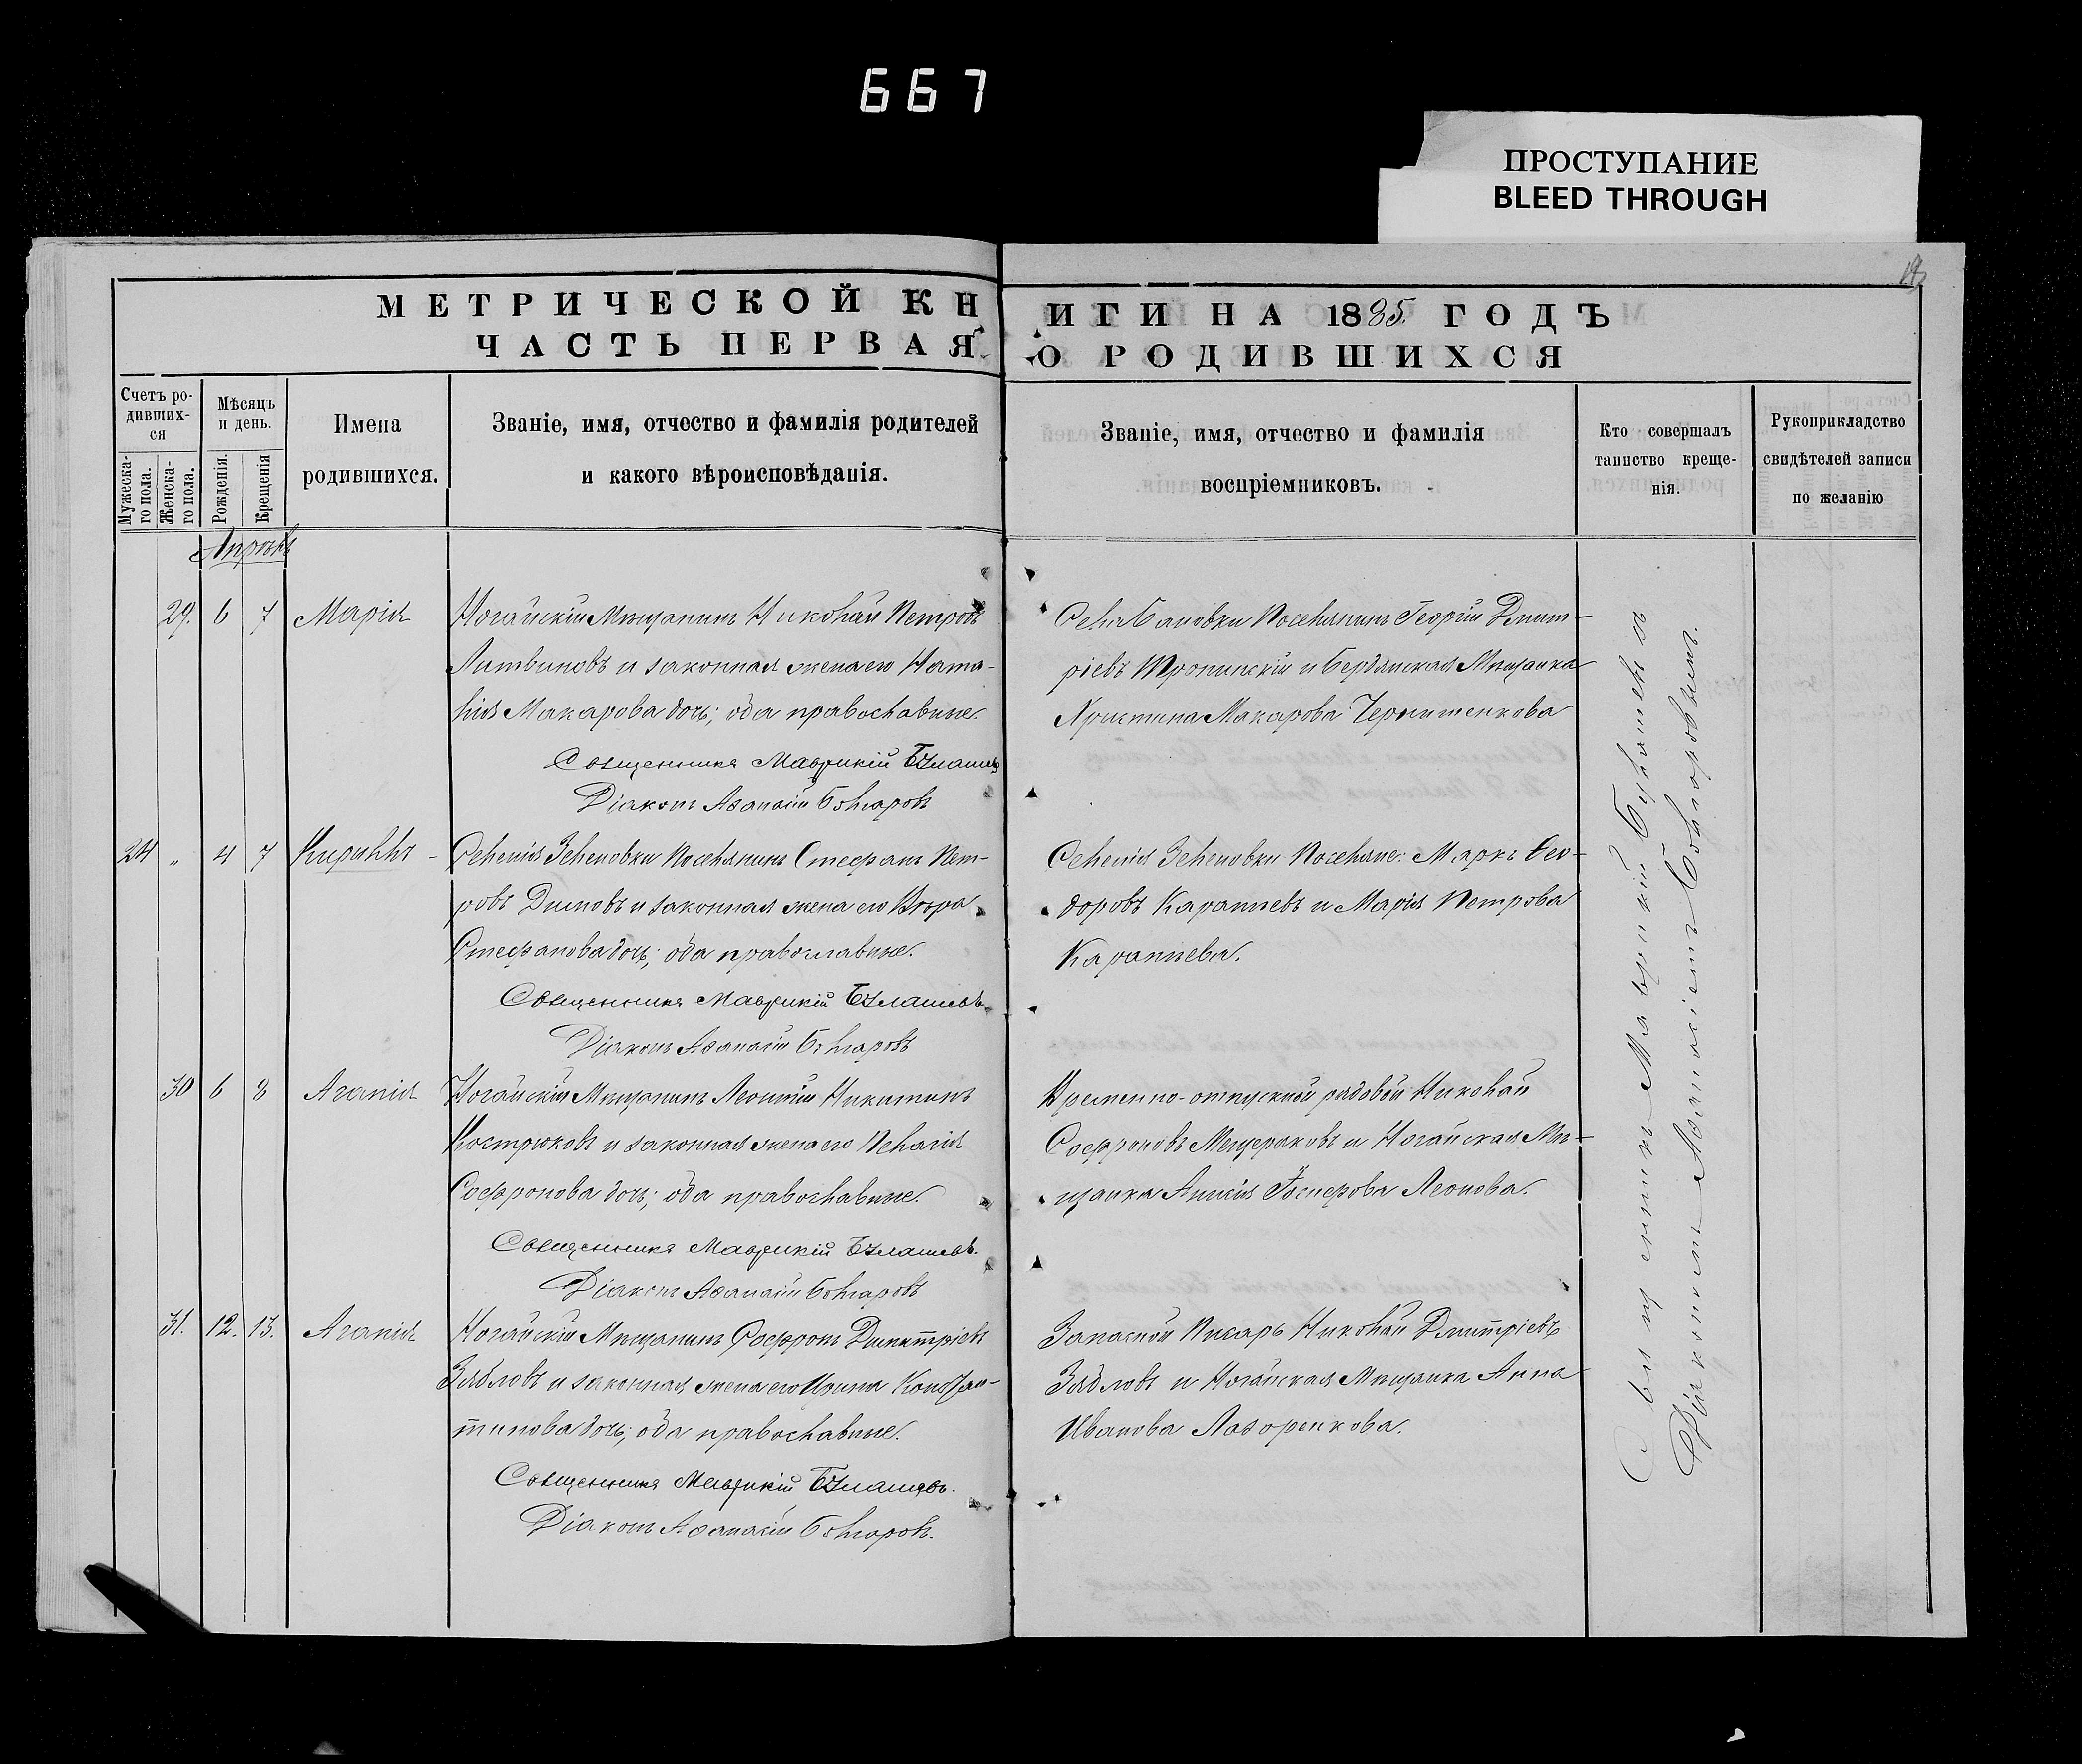 667
ПРОСТУПАНИЕ
BLEED THROUGH
МЕТРИЧЕСКОЙ КНИГИ НА 1885. ГОДЪ
ЧАСТЬ ПЕРВАЯ О РОДИВШИХСЯ
Счетъ ро-
дивших-
ся
Мужеска-
го пола.
Женска-
го пола.
Мѣсяцъ
и день.
Рожденія.
Крещенія
Имена
родившихся.
Званіе, имя, отчество и фамилія родителей
и какого вѣроисповѣданія.
Званіе, имя, отчество и фамилія
воспріемниковъ.
Кто совершалъ
таинство креще-
нія.
Рукоприкладство
свидѣтелей записи
по желанію
Апрѣль
29. 6 7 Марія
Ногайскій Мѣщанинъ Николай Петровъ
Литвиновъ и законная жена его Ната-
лія Макарова дочь; оба православные.
Священникъ Маврикій
Діаконъ Аѳанасій Болгаровъ
Села Бановки Поселянинъ Георгій Дмит-
ріевъ и Бердянская Мѣщанка
Христина Макарова
24 „ 4 7 Кириллъ
Селенія Зеленовки Поселянинъ Стефанъ Пет-
ровъ Димовъ и законная жена его Вѣра
Стефанова дочь; оба православные.
Священникъ Маврикій
Діаконъ Аѳанасій Болгаровъ
Селенія Зеленовки Поселяне: Маркъ Ѳео-
доровъ и Марія Петрова
30 6 8 Агапія
Ногайскій Мѣщанинъ Леонтій Никитинъ
Кострюковъ и законная жена его Пелагія
Софронова дочь; оба православные.
Священникъ Маврикій
Діаконъ Аѳанасій Болгаровъ
Временно-отпускной рядовой Николай
Софроновъ Мещеряковъ и Ногайская Мѣ-
щанка Леонова.
31. 12. 13. Агапія
Ногайскій Мѣщанинъ Софронъ Димитріевъ
Зябловъ и законная жена его Ирина Констан-
тинова дочь; оба православные.
Священникъ Маврикій
Діаконъ Аѳанасій Болгаровъ.
Запасной Писарь Николай Дмитріевъ
Зябловъ и Ногайская Мѣщанка Анна
Иванова Лазоренкова.
Священникъ Маврикій
Діакономъ Аѳанасіемъ Болгаровымъ.